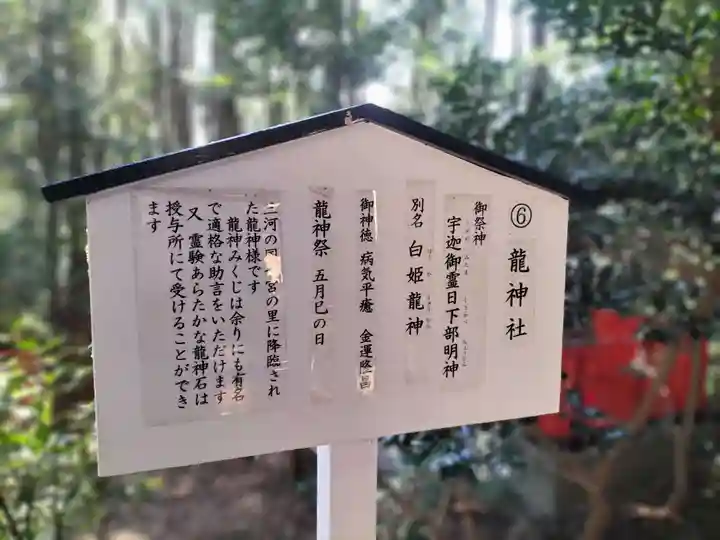 ⑥ 龍神社
御祭神
宇迦御霊日下部明神
別名 白姫龍神
御神徳 病気平癒 金運隆昌
龍神祭 五月巳の日
三河の国 宮の里に降臨され
た龍神様です
龍神みくじは余りにも有名
で適格な助言をいただけます
又 霊験あらたかな龍神石は
授与所にて受けることができ
ます